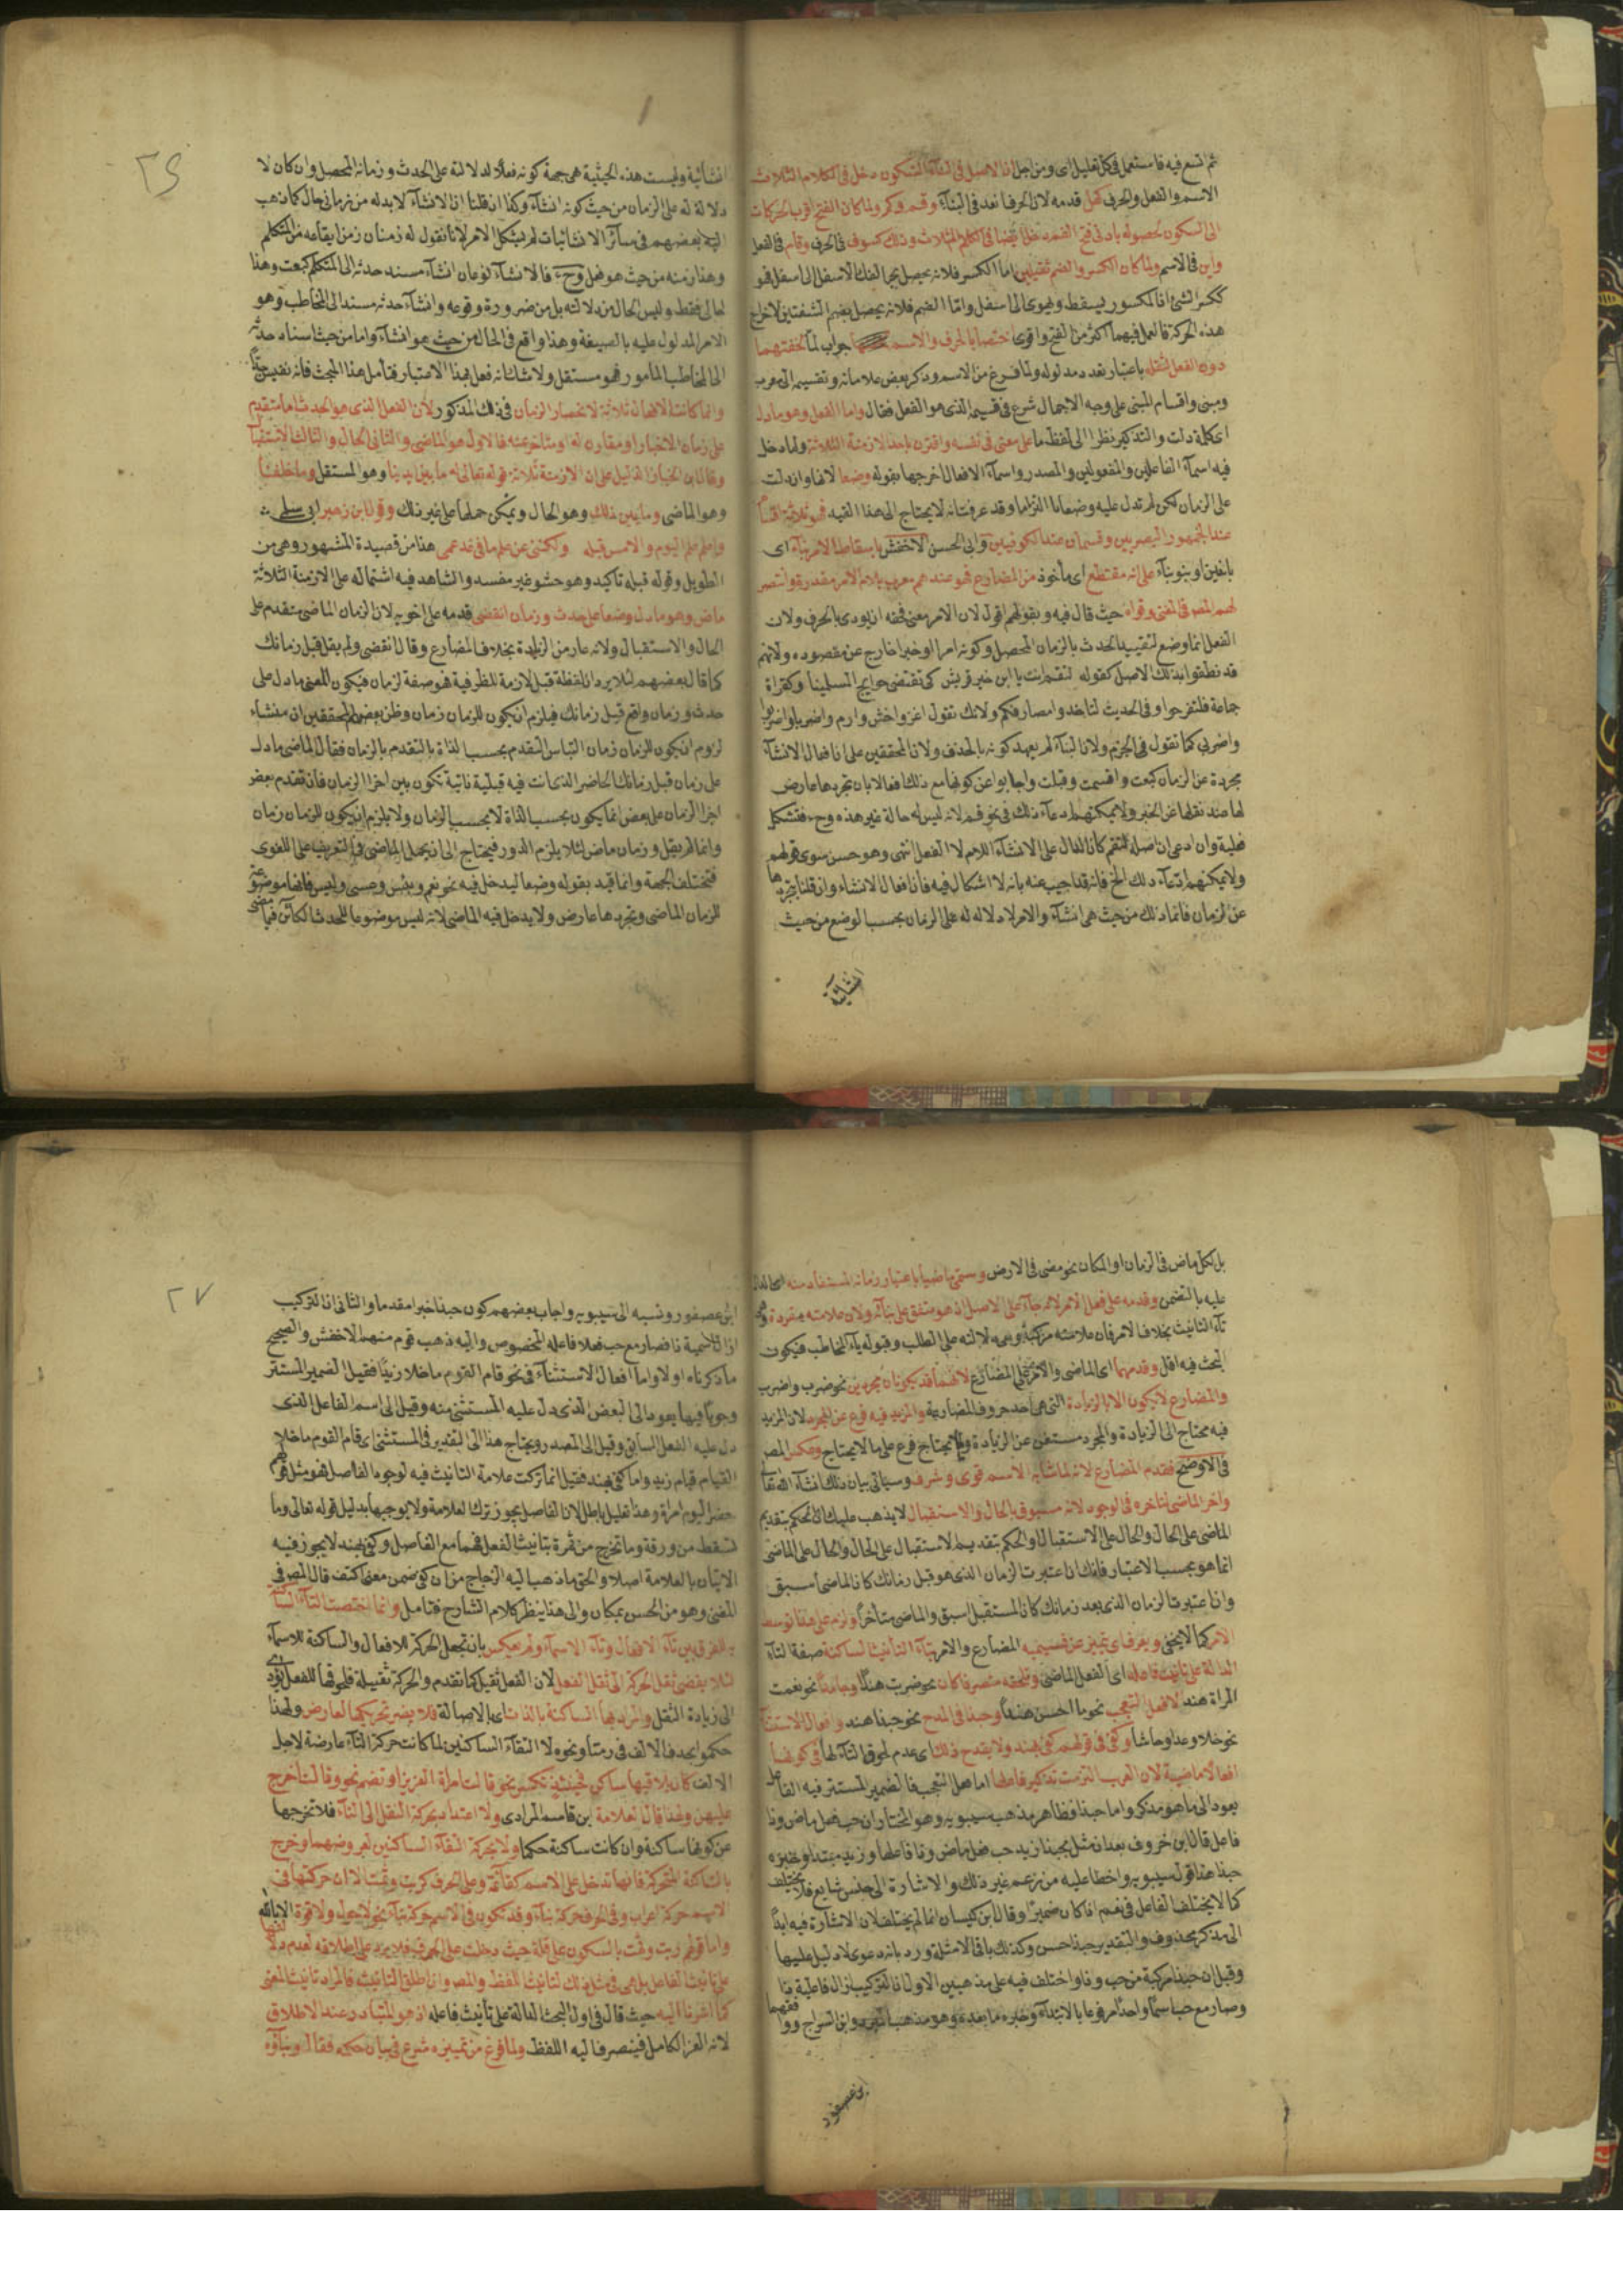 ثم اتسع فيه فاستعمل في كل تعليل اى ومن اجل ان الاصل في البناء السكون دخل في الكلام الثلاث
الاسم والفعل والحرف كهل قدمه لان الحرف اقعد في البناء وقم وكم ولما كان الفتح اقرب الحركات
الى السكون لحصوله بادنى فتح الفم دخل ايضا في الكلم الثلاث وذلك كسوف في الحرف وقام في الفعل
واين في الاسم ولما كان الكسر والضم ثقيلين اما الكسر فلانه يحصل بجر الفك الاسفل الى اسفل فهو
ككسر الشئ اذ المكسور يسقط ويهوى الى اسفل واما الضم فلانه يحصل بضم الشفتين لاخراج
هذه الحركة فالعمل فيهما اكثر من الفتح واقوى اختصا بالحرف والاسم جواب لما لخفتهما
دون الفعل لثقله باعتبار تعدد مدلوله ولما فرغ من الاسم وذكر بعض علاماته وتقسيمه الى معرب
ومبنى واقسام المبنى على وجه الاجمال شرع في قسيمه الذى هو الفعل فقال واما الفعل وهو ما دل
اى كلمة دلت والتذكير نظرا الى لفظ ما على معنى في نفسه واقترن باحد الازمنة الثلاثة ولما دخل
فيه اسماء الفاعلين والمفعولين والمصدر واسماء الافعال اخرجها بقوله وضعا لانها وان دلت
على الزمان لكن لم تدل عليه وضعا بل التزاما وقد عرفت انه لا يحتاج الى هذا القيد فهو ثلاثة اقسام
عند الجمهور البصريين وقسمان عند الكوفيين وابى الحسن الاخفش باسقاط الامر بناء اى
بانين او بنو بناء على انه مقتطع اى مأخوذ من المضارع فهو عندهم معرب بلام الامر مقدرة وانتصر
لهم المص في المغنى وقواه حيث قال فيه وبقولهم اقول لان الامر معنى فحقه ان يودى بالحرف ولان
الفعل انما وضع لتقييد الحدث بالزمان المحصل وكونه امرا او خبرا خارج عن مقصوده ولانهم
قد نطقوا بذلك الاصل كقوله لتقم انت يا ابن خير قريش كى تقتضى حوايج المسلمينا وكقراة
جماعة فلتفرحوا وفى الحديث لتاخذوا مصافكم ولانك تقول اغز واخش وارم واضربا واضربوا
واضربى كما تقول في الجزم ولان البناء لم يعهد كونه بالحذف ولان المحققين على ان افعال الانشاء
مجردة عن الزمان كبعت واقسمت وقبلت واجابوا عن كونها مع ذلك افعالا بان تجردها عارض
لها عند نقلها عن الخبر ولا يمكنهم ادعاء ذلك في نحو قم لانه ليس له حالة غير هذه وح فتشكل
فعليته وان ادعى ان اصله لتقم كان الدال على الانشاء اللام لا الفعل انتهى وهو حسن سوى قولهم
ولا يمكنهم ادعاء ذلك الخ فانه قد اجيب عنه بانه لا اشكال فيه فان افعال الانشاء وان قلنا بتجردها
عن الزمان فانما ذلك من حيث هى انشاء والامر لا دلالة له على الزمان بحسب الوضع من حيث
انشائية
٢٦
انشائية وليست هذه الحيثية هى جهة كونه فعلا لدلالته على الحدث وزمانه المحصل وان كان لا
دلالة له على الزمان من حيث كونه انشاء وكذا ان قلنا ان الانشاء لا بد له من زمان حال كما ذهب
اليه بعضهم في سائر الانشائيات لم يشكل الامر لانا نقول له زمنان زمن ايقاعه من المتكلم
وهذا زمنه من حيث هو فعل وح فالانشاء نوعان انشاء مسند حدثه الى المتكلم كبعت وهذا
لحالى فقط وليس الحال من دلالته بل من ضرورة وقوعه وانشاء حدثه مسند الى المخاطب وهو
الامر المدلول عليه بالصيغة وهذا واقع في الحال من حيث هو انشاء واما من حيث اسناد حدثه
الى المخاطب المأمور فهو مستقل ولا شك انه فعل بهذا الاعتبار فتأمل هذا المبحث فانه نفيس جدا
وانما كانت الافعال ثلاثة لانحصار الزمان في ذلك المذكور لان الفعل الذى هو الحدث اما متقدم
على زمان الاخبار او مقارن له او متاخر عنه فالاول هو الماضى والثانى الحال والثالث الاستقبال
وقال ابن الخباز الدليل على ان الازمنة ثلاثة قوله تعالى له ما بين يدينا وهو المستقبل وما خلفنا
وهو الماضى وما بين ذلك وهو الحال ويمكن حملها على غير ذلك وقول ابن زهير ابى سلمى
واعلم علم اليوم والامس قبله ولكننى عن علم ما في غد عمى هذا من قصيدة المشهور وهى من
الطويل وقوله قبله تأكيد وهو حشو غير مفسد والشاهد فيه اشتماله على الازمنة الثلاثة
ماض وهو ما دل وضعا على حدث وزمان انقضى قدمه على اخويه لان الزمان الماضى متقدم على
الحال والاستقبال ولانه عار من الزيادة بخلاف المضارع وقال انقضى ولم يقل قبل زمانك
كما قال بعضهم لئلا يرد ان لفظة قبل لازمة للظرفية فهو صفة لزمان فيكون المعنى ما دل على
حدث وزمان واقع قبل زمانك فيلزم ان يكون للزمان زمان وظن بعض المحققين ان منشاء
لزوم ان يكون للزمان زمان التباس التقدم بحسب الذاة بالتقدم بالزمان فقال الماضى ما دل
على زمان قبل زمانك الحاضر الذى انت فيه قبلية ذاتية تكون بين اجزا الزمان فان تقدم بعض
اجزا الزمان على بعض انما يكون بحسب الذاة لا بحسب الزمان ولا يلزم ان يكون للزمان زمان
وانما لم يقل وزمان ماض لئلا يلزم الدور فيحتاج الى ان يحمل الماضى في التعريف على اللغوى
فتختلف الجهة وانما قيد بقوله وضعا ليدخل فيه نحو نعم وبئس وعسى وليس فانها موضوعة
للزمان الماضى وتجردها عارض ولا يدخل فيه الماضى لانه ليس موضوعا للحدث الكائن فيما مضى
بل لكل ماض في الزمان او المكان نحو مضى في الارض وسمى ماضيا باعتبار زمانه المستفاد منه
عليه بالتضمن وقدمه على فعل الامر لانه جاء على الاصل اذ هو متفق على بنائه ولان علامته مفردة وهى
تاء التانيث بخلاف الامر فان علامته مركبة وهى دلالته على الطلب وقبوله ياء المخاطب فيكون
البحث فيه اقل وقدمهما اى الماضى والامر على المضارع لانهما قد يكونان مجردين نحو ضرب واضرب
والمضارع لا يكون الا بالزيادة التى هى احد حروف المضارعة والمزيد فيه فرع عن المجرد لان المزيد
فيه محتاج الى الزيادة والمجرد مستغن عن الزيادة وما يحتاج فرع على ما لا يحتاج وعكس المص
في الاوضح فقدم المضارع لانه لما شابه الاسم قوى وشرف وسياتى بيان ذلك انشاء الله تعالى
واخر الماضى لتاخره في الوجود لانه مسبوق بالحال والاستقبال لا يذهب عليك ان الحكم بتقديم
الماضى على الحال والحال على الاستقبال والحكم بتقديم الاستقبال على الحال والحال على الماضى
انما هو بحسب الاعتبار فانك ان اعتبرت الزمان الذى هو قبل زمانك كان الماضى اسبق
وان اعتبرت الزمان الذى بعد زمانك كان المستقبل اسبق والماضى متأخرا ولزم على هذا توسط
الامر كما لا يخفى ويعرف اى تميز عن قسيميه المضارع والامر بتاء التأنيث الساكنة صفة لتاء
الدالة على تانيث فاعله اى الفعل الماضى وتلحقه متصرفا كان نحو ضربت هند او جامدا نحو نعمت
المراة هند لا فعل التعجب نحو ما احسن هندا وحبذا في المدح نحو حبذا هند وافعال الاستثناء
نحو خلا وعدا وحاشا وكفى في قولهم كفى بهند ولا يقدح ذلك اى عدم لحوق التاء لها في كونها
افعالا ماضية لان العرب التزمت تذكير فاعلها اما فعل التعجب فالضمير المستتر فيه الفاعل
يعود الى ما هو مذكر واما حبذا فظاهر مذهب سيبويه وهو المختار ان حب فعل ماض وذا
فاعل قال ابن خروف بعد ان مثل بحبذا زيد حب فعل ماض وذا فاعلها وزيد مبتدا وخبره
حبذا هذا قول سيبويه واخطا عليه من زعم غير ذلك والاشارة الى جنس شايع فلا يختلف
كما لا يختلف الفاعل في نعم اذا كان ضميرا وقال ابن كيسان انما لم يختلف لان الاشارة فيه ابدا
الى مذكر محذوف والتقدير حبذا حسن وكذلك باقى الامثلة ورد بانه دعوى لا دليل عليها
وقيل ان حبذا مركبة من حب وذا واختلف فيه على مذهبين الاول ان التركيب ازال فاعلية ذا
وصار مع حب اسما واحدا مرفوعا بالابتداء وخبره ما بعده وهو مذهب المبرد وابن السراج ووافقهما
ابن عصفور
٢٧
ابن عصفور ونسبه الى سيبويه واجاب بعضهم كون حبذا خبرا مقدما والثانى ان التركيب
ازال اسمية ذا فصار مع حب فعلا فاعله المخصوص واليه ذهب قوم منهم الاخفش والصحيح
ما ذكرناه اولا واما افعال الاستثناء في نحو قام القوم ما خلا زيدا فقيل الضمير المستتر
وجوبا فيها يعود الى البعض الذى دل عليه المستثنى منه وقيل الى اسم الفاعل الذى
دل عليه الفعل السابق وقيل الى المصدر ويحتاج هذا الى التقدير في المستثنى اى قام القوم ما خلا
القيام قيام زيد واما كفى بهند فقيل انما تركت علامة التانيث فيه لوجود الفاصل فهو مثل قولهم
حضر اليوم امراة وهذا تعليل باطل لان الفاصل يجوز ترك العلامة ولا يوجبها بدليل قوله تعالى وما
تسقط من ورقة وما تخرج من ثمرة بتانيث الفعل فيهما مع الفاصل وكفى بهند لا يجوز فيه
الاتيان بالعلامة اصلا والحق ما ذهب اليه الزجاج من ان كفى ضمن معنى اكتف قال المص في
المغنى وهو من الحسن بمكان والى هذا ينظر كلام الشارح فتامل وانما اختصت التاء الساكنة
للفرق بين تاء الافعال وتاء الاسماء ولم يعكس بان تجعل الحركة للافعال والساكنة للاسماء
لئلا ينضم ثقل الحركة الى ثقل الفعل لان الفعل ثقيل كما تقدم والحركة ثقيلة فلحوقها للفعل يؤدى
الى زيادة الثقل والمراد بها الساكنة بالذات اى بالاصالة فلا يضر تحركها لعارض ولهذا
حكموا بحذف الالف في رمتا ونحوه لالتقاء الساكنين لما كانت حركة التاء عارضة لاجل
الالف كان يلاقيها ساكن فحينئذ تكسر نحو قالت امراة العزيز او تضم نحو وقالت اخرج
عليهن ولهذا قال العلامة ابن قاسم المرادى ولا اعتداد بحركة النقل الى التاء فلا تخرجها
عن كونها ساكنة وان كانت ساكنة حكما ولا بحركة التقاء الساكنين لعروضهما وخرج
بالساكنة المتحركة فانها تدخل على الاسم كقائمة وعلى الحرف كربت وثمت الا ان حركتها في
الاسم حركة اعراب وفى الحرف حركة بناء وقد تكون في الاسم حركة بناء نحو لا حول ولا قوة الا بالله
واما قولهم ربت وثمت بالسكون على قلة حيث دخلت على الحرف فلا يرد على اطلاقه لعدم دلالتها
على تانيث الفاعل بل هى في مثل ذلك لتانيث اللفظ والمص وان اطلق التانيث فالمراد تانيث المعنى
كما اشرنا اليه حيث قال في اول البحث الدالة على تأنيث فاعله اذ هو المتبادر عند الاطلاق
لانه الفرد الكامل فينصرف اليه اللفظ ولما فرغ من تمييزه شرع في بيان حكمه فقال وبناؤه